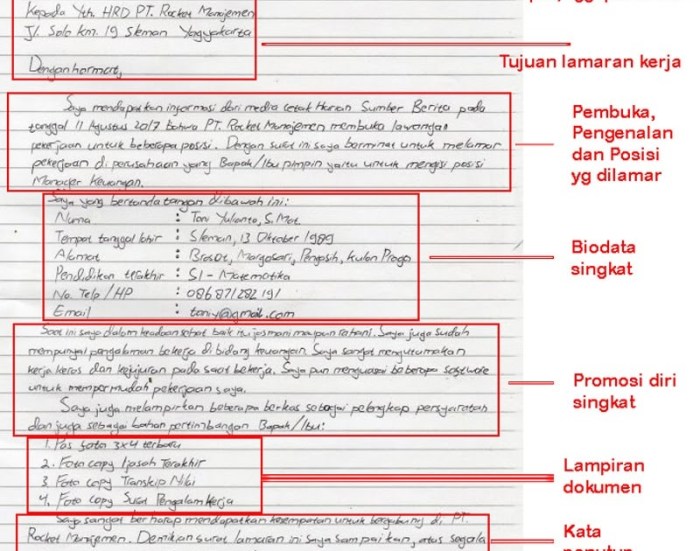 Kepada Yth HRD PT. Rocket Manajemen
Jl. Solo Km. 19 Sleman Yogyakarta
Tujuan lamaran kerja
Dengan hormat,
Saya mendapatkan informasi dari media cetak Harian Sumber Berita pada
tanggal 11 Agustus 2017 bahwa PT. Rocket Manajemen membuka lowongan
pekerjaan untuk beberapa posisi. Dengan surat ini saya berminat untuk melamar
pekerjaan di perusahaan yang Bapak/Ibu pimpin yaitu untuk mengisi posisi
Manager Keuangan.
Pembuka,
Pengenalan
dan Posisi
yg dilamar
Saya yang bertanda tangan dibawah ini:
Nama : Toni Yulianto, S.Mat
Tempat tanggal lahir : Sleman, 13 Oktober 1989
Alamat : Brosot, Margosari, Pengasih, Kulon Progo
Pendidikan terakhir : S1 - Matematika
No. Telp / HP : 086871282191
Email : toniy@gmail.com
Biodata
singkat
Saat ini saya dalam keadaan sehat baik itu jasmani maupun rohani. Saya juga sudah
mempunyai pengalaman bekerja di bidang keuangan. Saya sangat mengutamakan
kerja keras dan kejujuran pada saat bekerja. Saya pun menguasai beberapa software
untuk mempermudah pekerjaan saya.
Saya juga melampirkan beberapa berkas sebagai pelengkap persyaratan
dan juga sebagai bahan pertimbangan Bapak/Ibu:
Promosi diri
singkat
1. Pas foto 3x4 terbaru
2. Foto copy Ijasah Terakhir
3. Foto copy Transkip Nilai
4. Foto copy Surat Pengalam Kerja
Lampiran
dokumen
Saya sangat berharap mendapatkan kesempatan untuk bergabung di PT.
Rocket Manajemen. Demikian surat lamaran ini saya sampaikan, atas segala
Kata